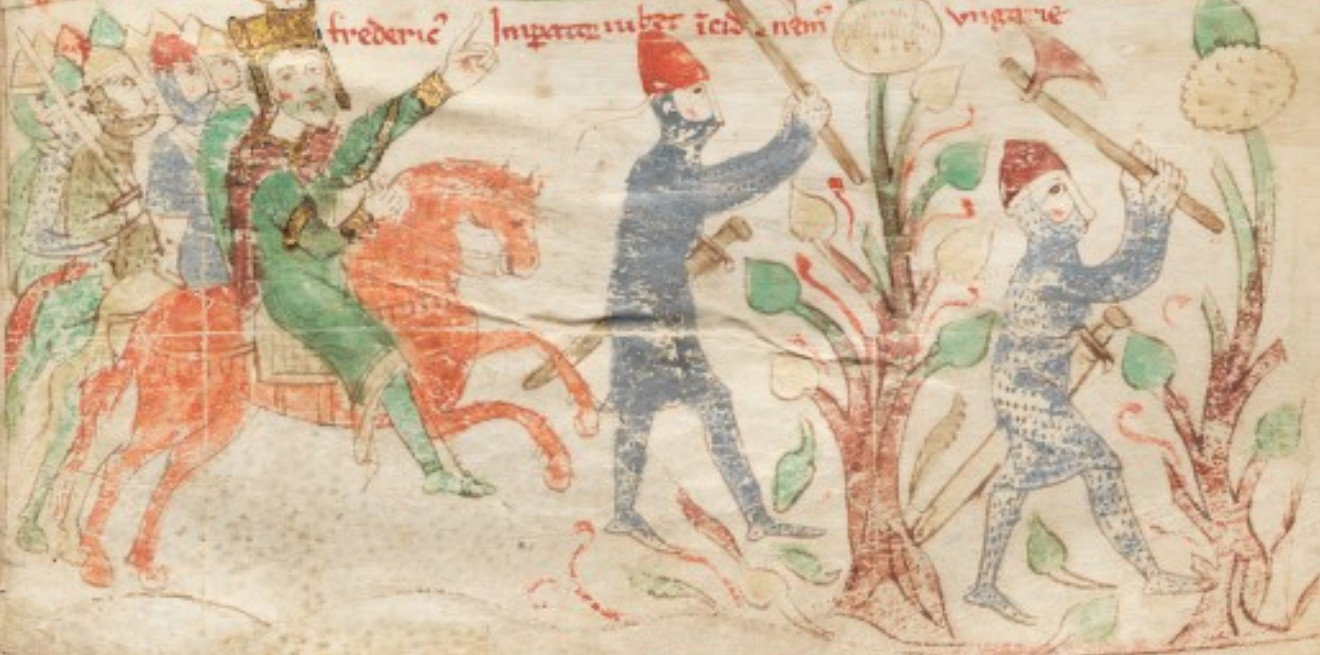 frederic᷒ Inp̄ator iubet īcid nem᷒ vngarie